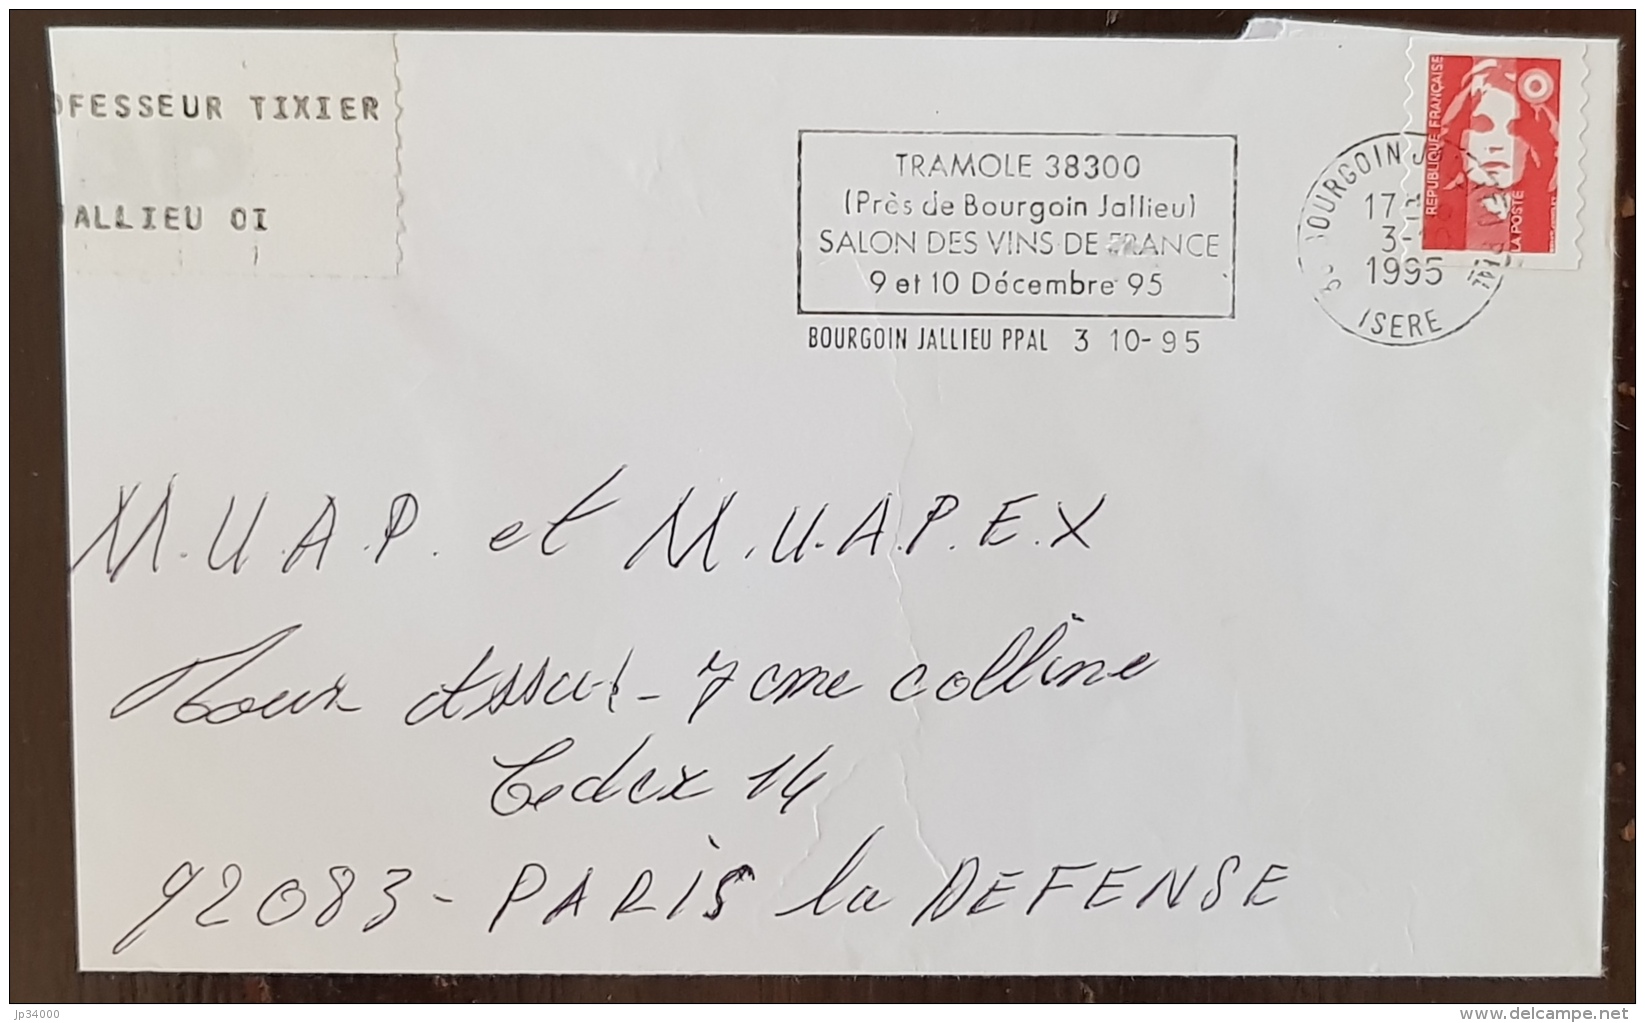 OFESSEUR TIXIER
JALLIEU 01
TRAMOLE 38300
(Près de Bourgoin Jallieu)
SALON DES VINS DE FRANCE
9 et 10 Décembre 95
BOURGOIN JALLIEU PPAL 3 10-95
BOURGOIN J
17
3-
1995
ISERE
REPUBLIQUE FRANÇAISE
LA POSTE
M.U.A.P. et M.U.A.P.E.X
Tour Assur - 7eme colline
Cedex 14
92083 - PARIS la DEFENSE
jp34000
delcampe.net